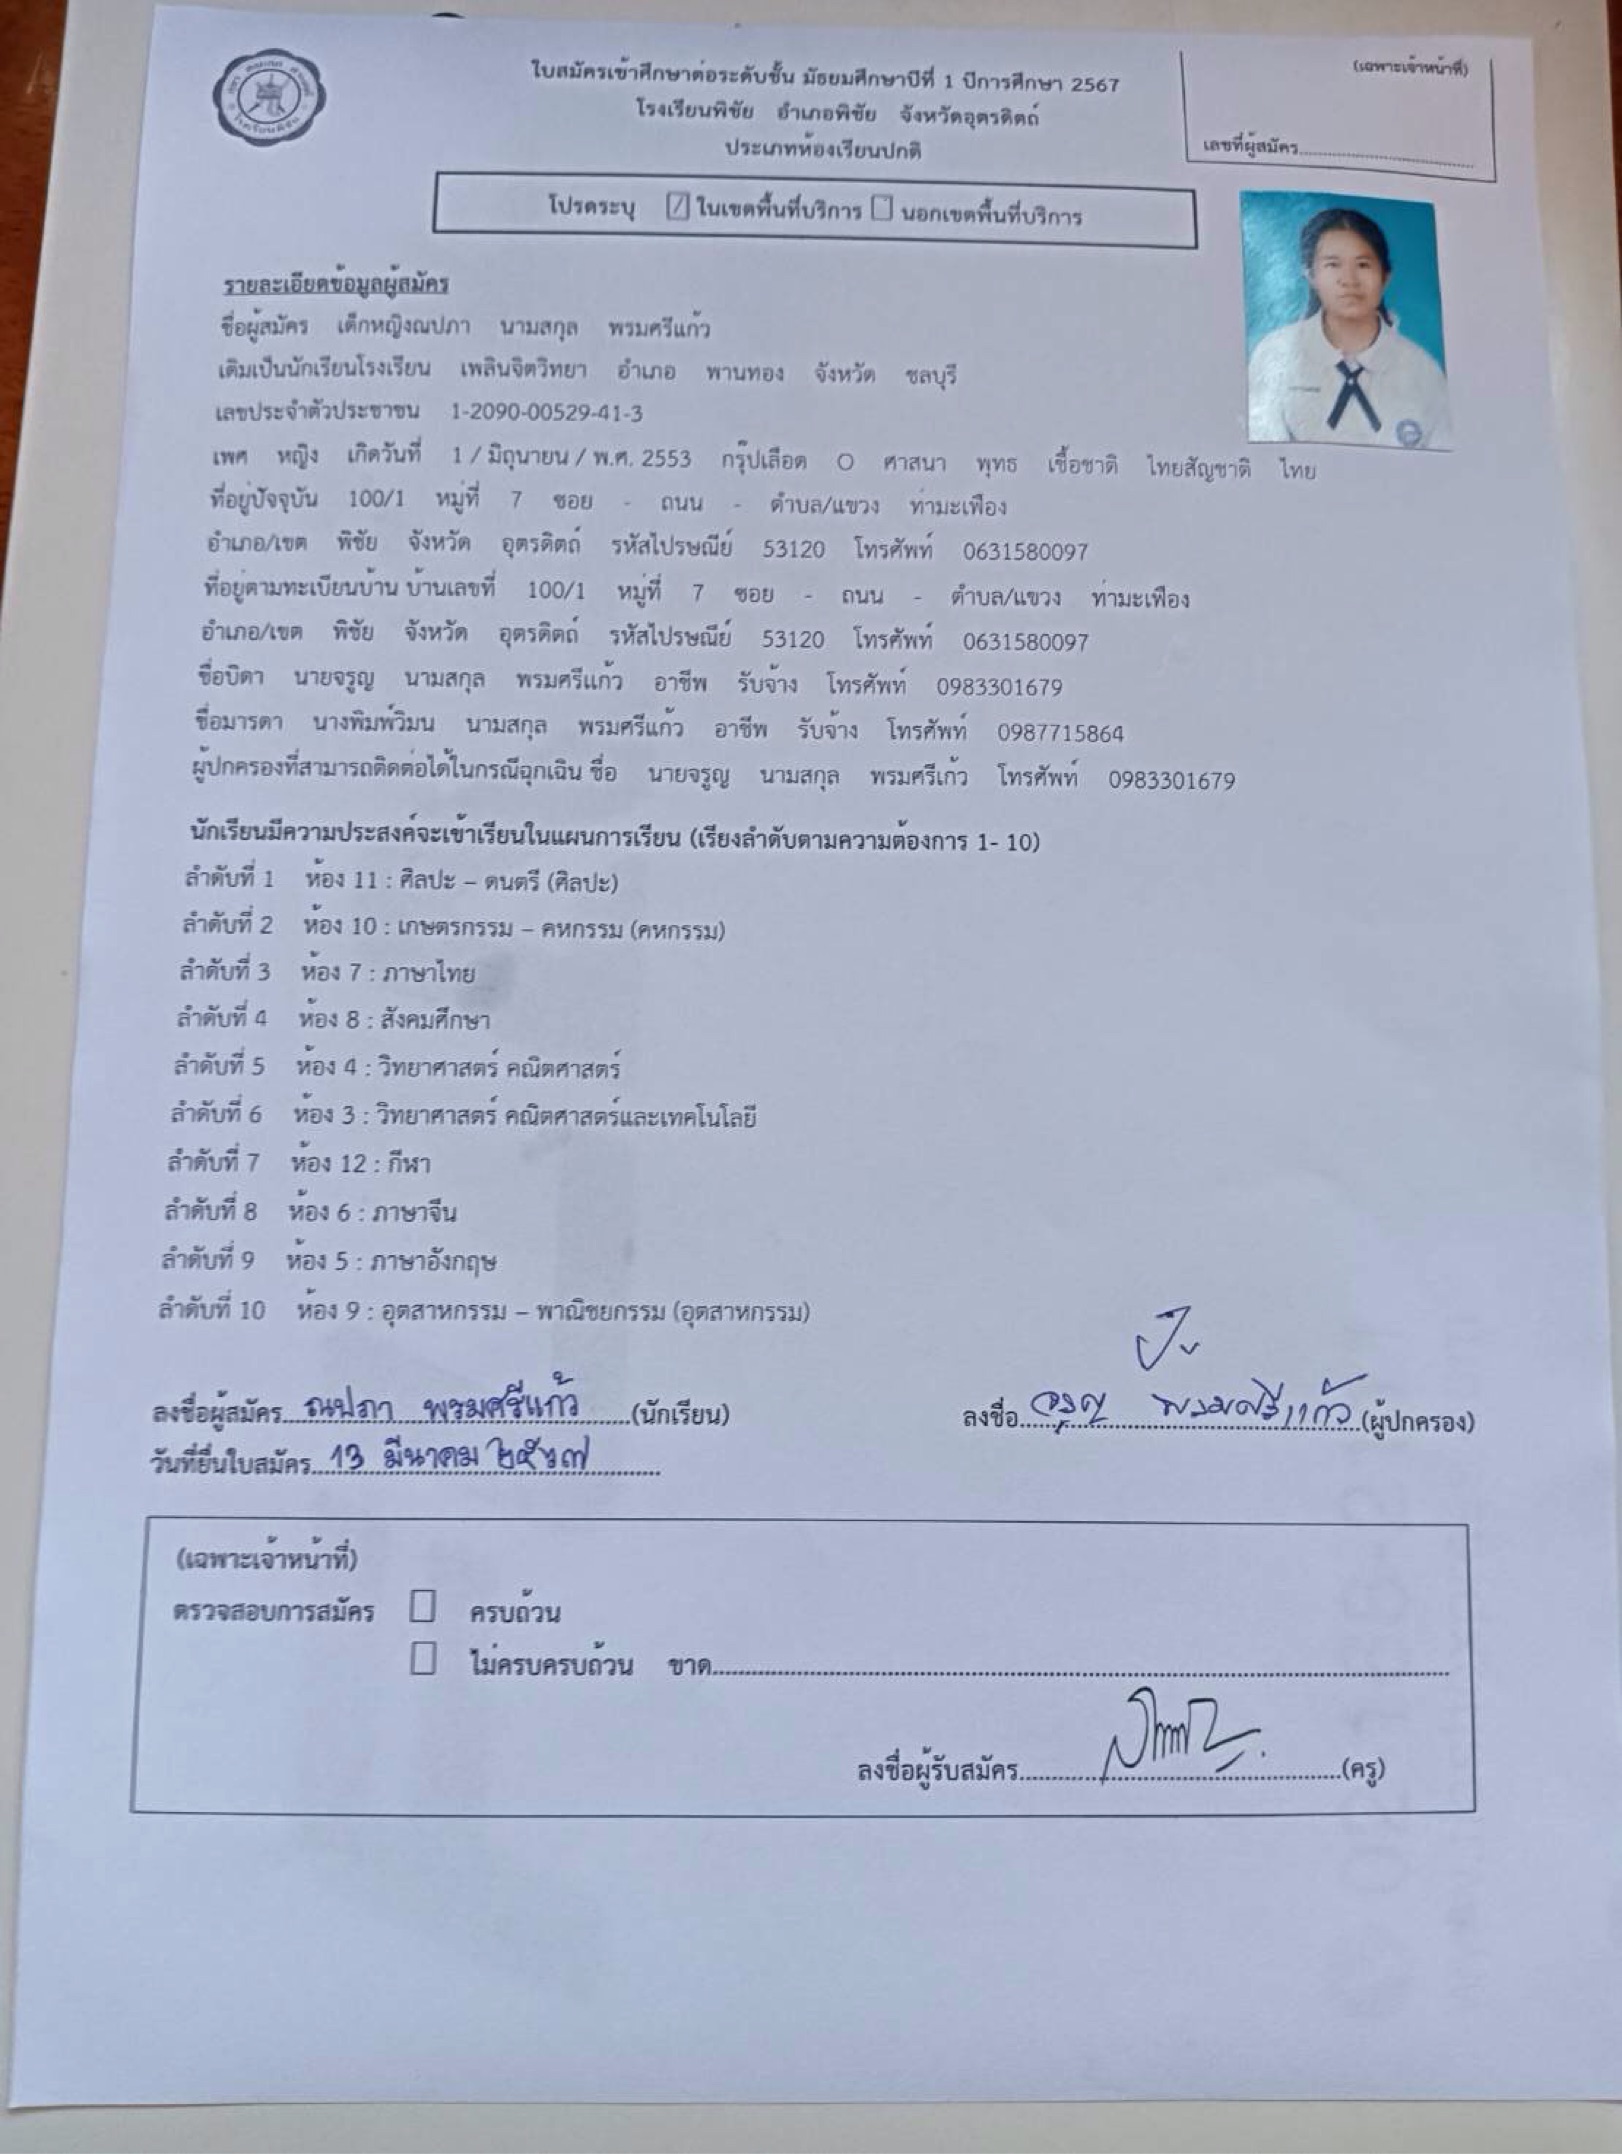 (เฉพาะเจ้าหน้าที่)
เลขที่ผู้สมัคร
ใบสมัครเข้าศึกษาต่อระดับชั้น มัธยมศึกษาปีที่ 1 ปีการศึกษา 2567
โรงเรียนพิชัย อำเภอพิชัย จังหวัดอุตรดิตถ์
ประเภทห้องเรียนปกติ
โปรดระบุ ในเขตพื้นที่บริการ นอกเขตพื้นที่บริการ
รายละเอียดข้อมูลผู้สมัคร
ชื่อผู้สมัคร เด็กหญิงณปภา นามสกุล พรมศรีแก้ว
เดิมเป็นนักเรียนโรงเรียน เพลินจิตวิทยา อำเภอ พานทอง จังหวัด ชลบุรี
เลขประจำตัวประชาชน 1-2090-00529-41-3
เพศ หญิง เกิดวันที่ 1 / มิถุนายน / พ.ศ. 2553 กรุ๊ปเลือด O ศาสนา พุทธ เชื้อชาติ ไทยสัญชาติ ไทย
ที่อยู่ปัจจุบัน 100/1 หมู่ที่ 7 ซอย - ถนน - ตำบล/แขวง ท่ามะเฟือง
อำเภอ/เขต พิชัย จังหวัด อุตรดิตถ์ รหัสไปรษณีย์ 53120 โทรศัพท์ 0631580097
ที่อยู่ตามทะเบียนบ้าน บ้านเลขที่ 100/1 หมู่ที่ 7 ซอย - ถนน - ตำบล/แขวง ท่ามะเฟือง
อำเภอ/เขต พิชัย จังหวัด อุตรดิตถ์ รหัสไปรษณีย์ 53120 โทรศัพท์ 0631580097
ชื่อบิดา นายจรูญ นามสกุล พรมศรีแก้ว อาชีพ รับจ้าง โทรศัพท์ 0983301679
ชื่อมารดา นางพิมพ์วิมน นามสกุล พรมศรีแก้ว อาชีพ รับจ้าง โทรศัพท์ 0987715864
ผู้ปกครองที่สามารถติดต่อได้ในกรณีฉุกเฉิน ชื่อ นายจรูญ นามสกุล พรมศรีเก้ว โทรศัพท์ 0983301679
นักเรียนมีความประสงค์จะเข้าเรียนในแผนการเรียน (เรียงลำดับตามความต้องการ 1- 10)
ลำดับที่ 1 ห้อง 11 : ศิลปะ – ดนตรี (ศิลปะ)
ลำดับที่ 2 ห้อง 10 : เกษตรกรรม – คหกรรม (คหกรรม)
ลำดับที่ 3 ห้อง 7 : ภาษาไทย
ลำดับที่ 4 ห้อง 8 : สังคมศึกษา
ลำดับที่ 5 ห้อง 4 : วิทยาศาสตร์ คณิตศาสตร์
ลำดับที่ 6 ห้อง 3 : วิทยาศาสตร์ คณิตศาสตร์และเทคโนโลยี
ลำดับที่ 7 ห้อง 12 : กีฬา
ลำดับที่ 8 ห้อง 6 : ภาษาจีน
ลำดับที่ 9 ห้อง 5 : ภาษาอังกฤษ
ลำดับที่ 10 ห้อง 9 : อุตสาหกรรม – พาณิชยกรรม (อุตสาหกรรม)
ลงชื่อผู้สมัคร ณปภา พรมศรีแก้ว (นักเรียน) ลงชื่อ จรูญ พรมศรีแก้ว (ผู้ปกครอง)
วันที่ยื่นใบสมัคร 13 มีนาคม ๒๕๖๗
(เฉพาะเจ้าหน้าที่)
ตรวจสอบการสมัคร ครบถ้วน
ไม่ครบครบถ้วน ขาด
ลงชื่อผู้รับสมัคร (ครู)